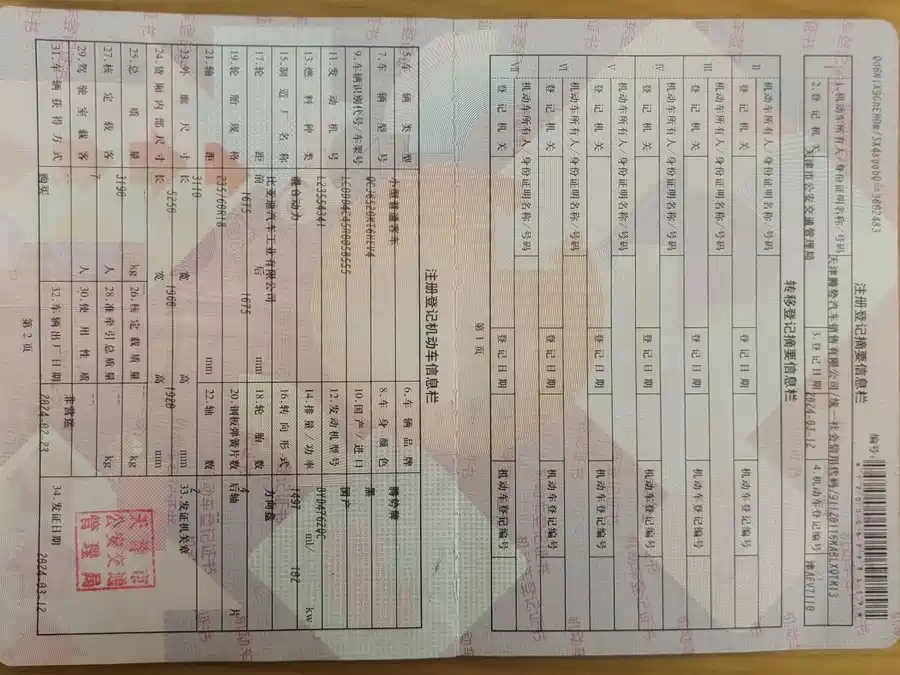 注册登记摘要信息栏
编号:
1.机动车所有人/身份证明名称/号码 天津腾势汽车销售有限公司/统一社会信用代码/
2.登记机关 天津市公安交通管理局 3.登记日期 2024-03-12 4.机动车登记编号
转移登记摘要信息栏
II 机动车所有人/身份证明名称/号码
登记机关 登记日期 机动车登记编号
III 机动车所有人/身份证明名称/号码
登记机关 登记日期 机动车登记编号
IV 机动车所有人/身份证明名称/号码
登记机关 登记日期 机动车登记编号
V 机动车所有人/身份证明名称/号码
登记机关 登记日期 机动车登记编号
VI 机动车所有人/身份证明名称/号码
登记机关 登记日期 机动车登记编号
VII 机动车所有人/身份证明名称/号码
登记机关 登记日期 机动车登记编号
第 1 页
注册登记机动车信息栏
5.车辆类型 小型普通客车 6.车辆品牌 腾势牌
7.车辆型号 QCJ6520MT6HEV4 8.车身颜色 黑
9.车辆识别代号/车架号 LC0D04C45R0058555 10.国产/进口 国产
11.发动机号 L23554341 12.发动机型号 BYD476ZQC
13.燃料种类 混合动力 14.排量/功率 1497 ml/ 102 kw
15.制造厂名称 比亚迪汽车工业有限公司 16.转向形式 方向盘
17.轮距 前 1675 后 1675 mm 18.轮胎数 4
19.轮胎规格 235/60R18 20.钢板弹簧片数 后轴 片
21.轴距 3110 mm 22.轴数 2
23.外廓尺寸 长 5250 宽 1960 高 1920 mm 33.发证机关章
24.货厢内部尺寸 长 宽 高 mm
25.总质量 3190 kg 26.核定载质量 -- kg
27.核定载客 7 人 28.准牵引总质量 -- kg
29.驾驶室载客 -- 人 30.使用性质 非营运
31.车辆获得方式 购买 32.车辆出厂日期 2024-02-23 34.发证日期 2024-03-12
天津市
公安交通
管理局
第 2 页